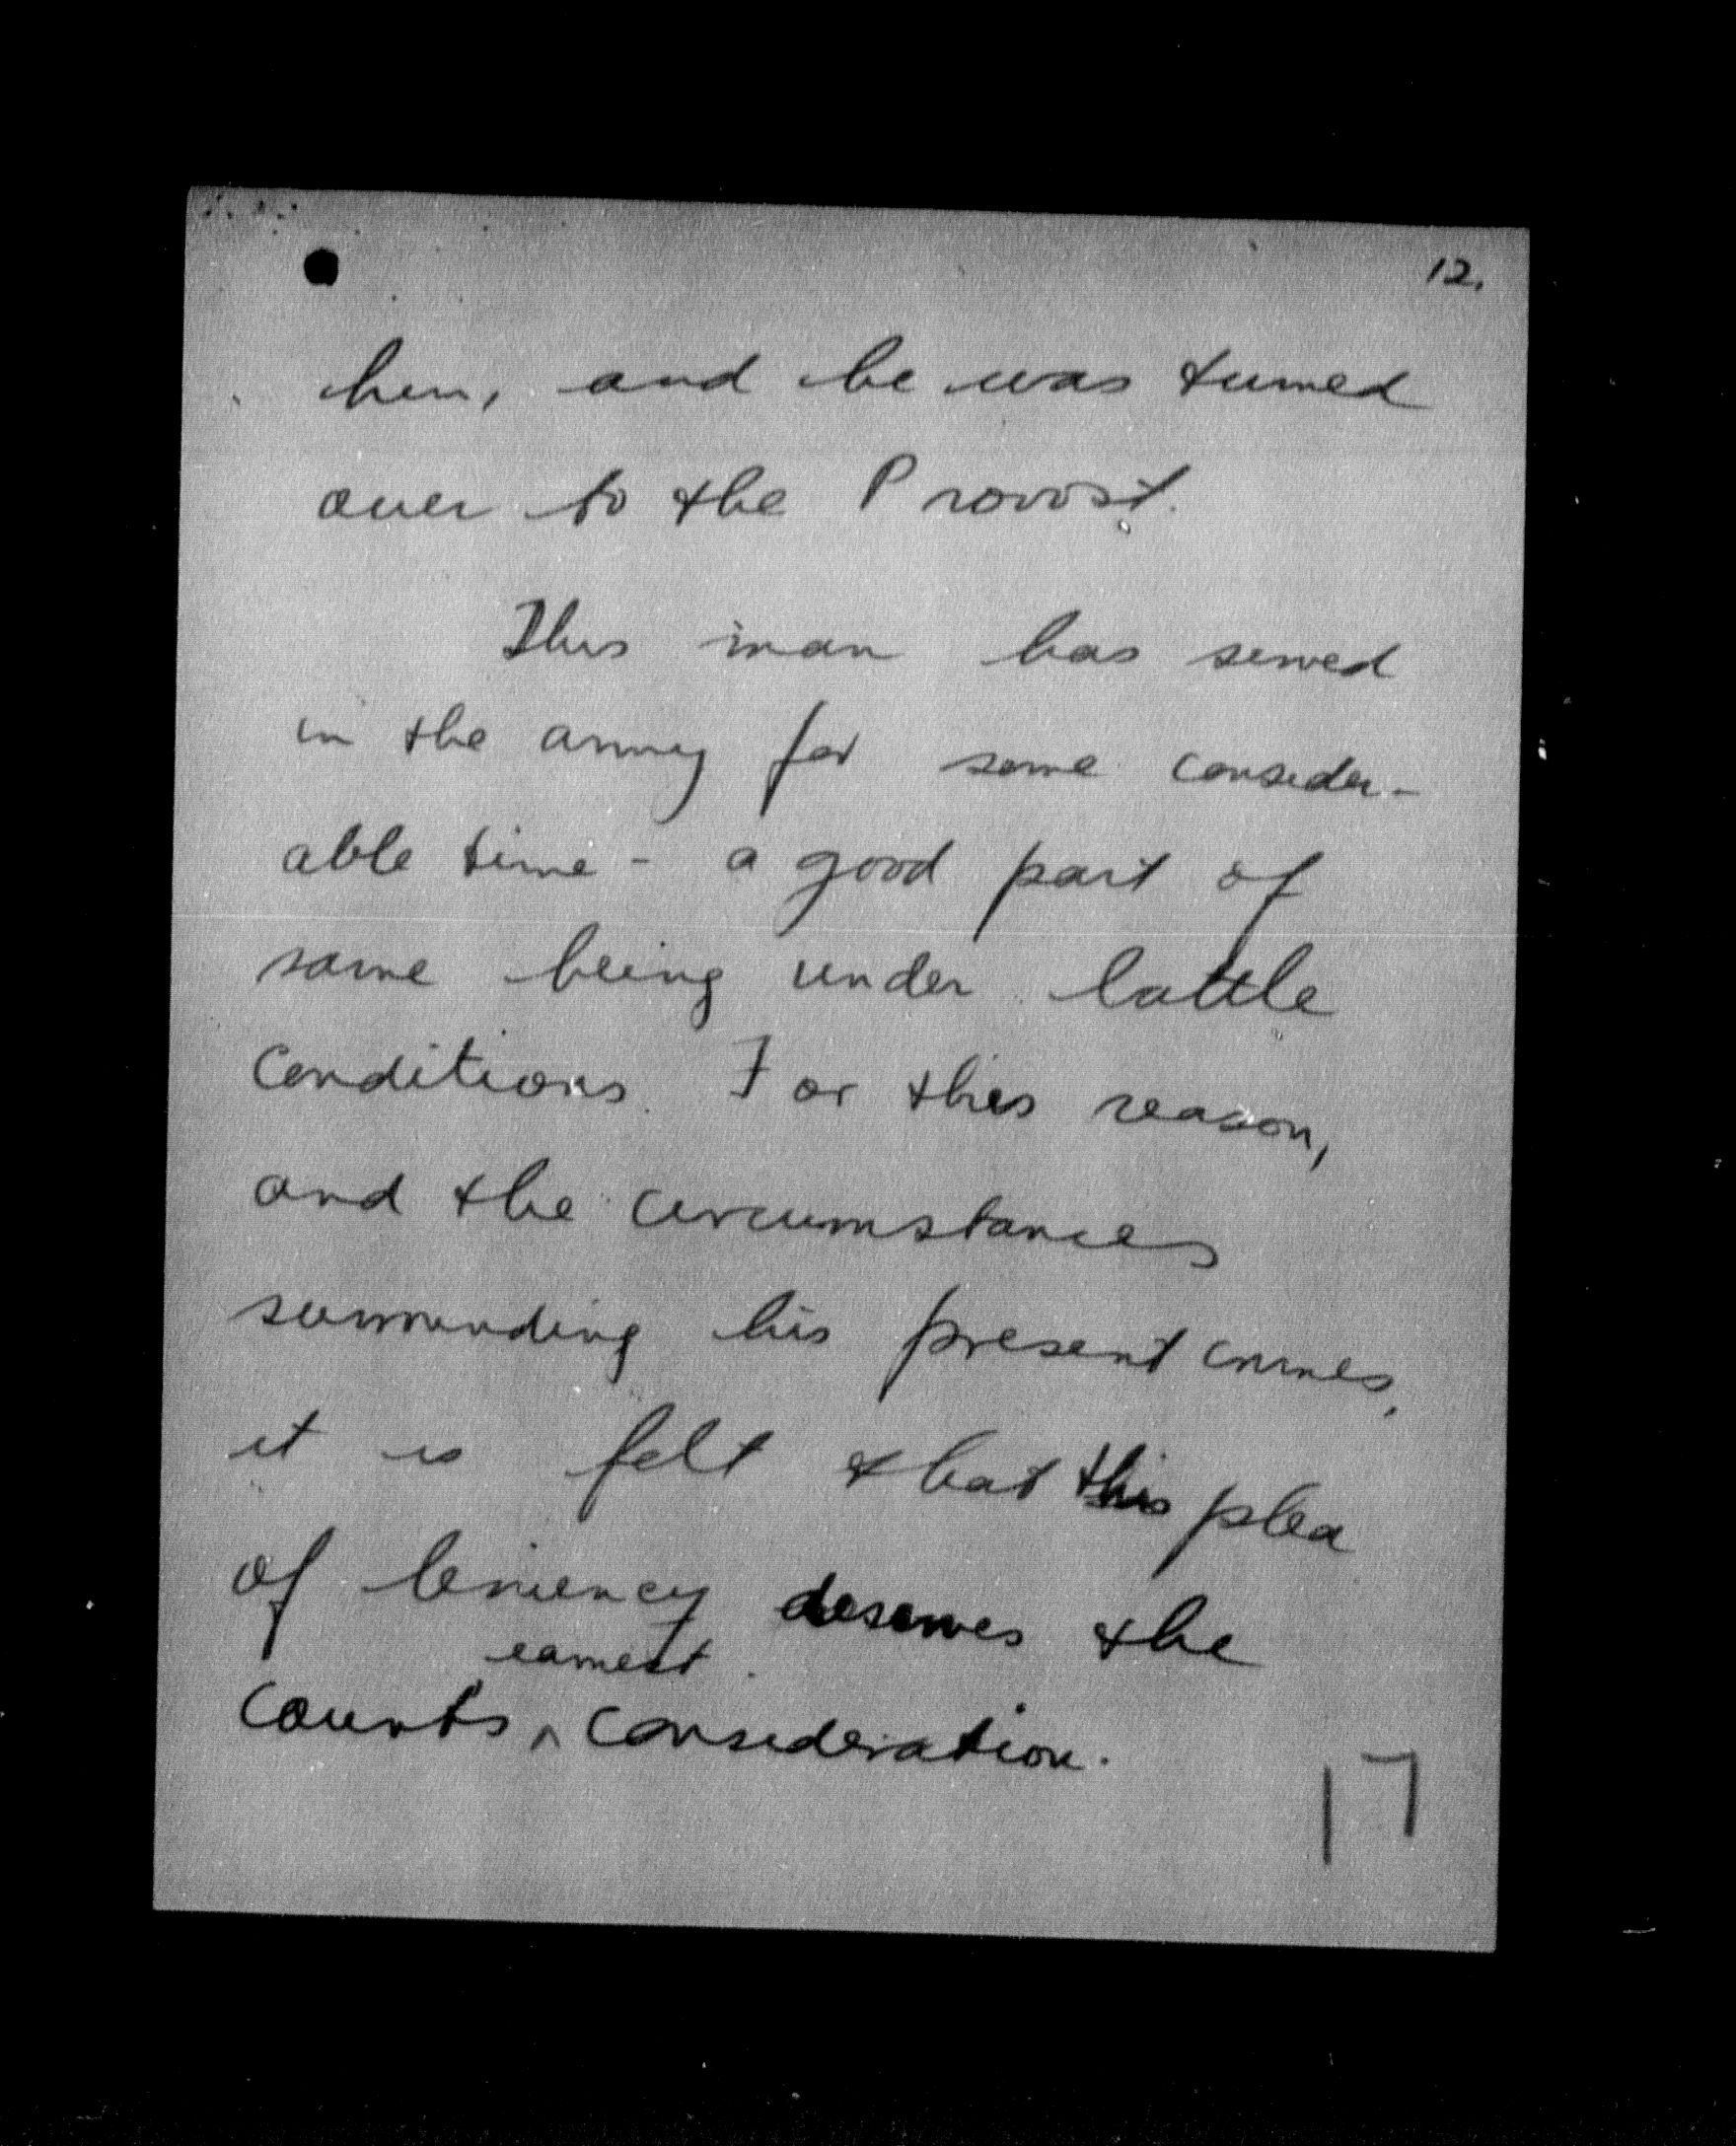 12.
him, and he was turned
over to the Provost.
This man has served
in the army for some consider-
able time - a good part of
same being under battle
conditions. For this reason,
and the circumstances
surrounding his present crimes,
it is felt that this plea
of leniency deserves the
earnest
Courts ^ consideration.
17